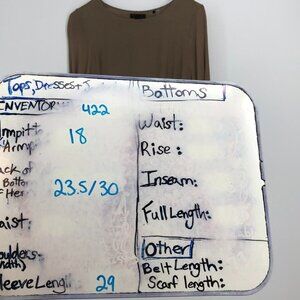 Tops, Dresses +
INVENTOR 422
Armpit to
Armp 18
ack of
Botto
f Her 23.5/30
aist:
oulders-
width)
leeve Leng 29
Bottoms
Waist:
Rise:
Inseam:
Full Length:
Other
Belt Length:
Scarf length: